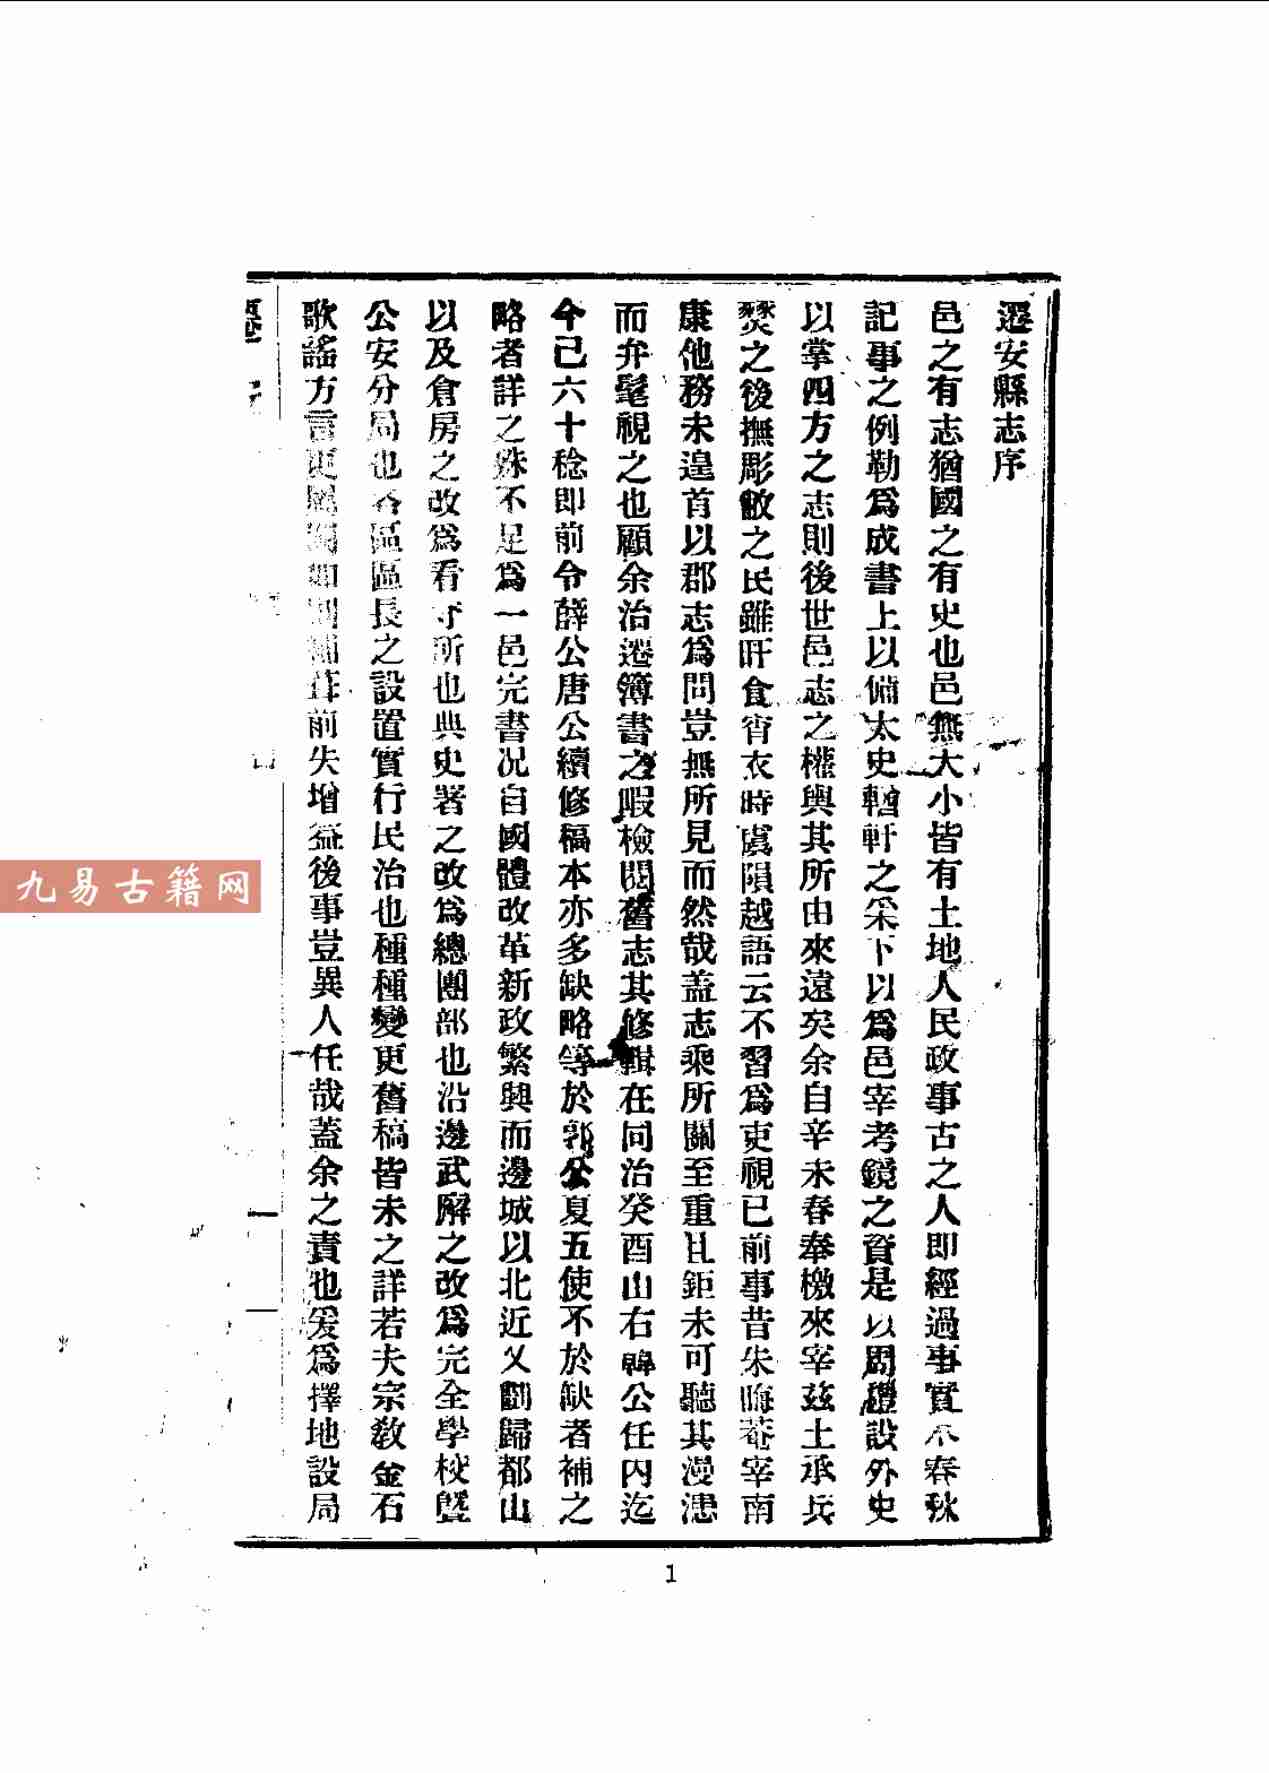 遷安縣志序
邑之有志猶國之有史也邑無大小皆有土地人民政事古之人即經過事實本春秋
記事之例勒爲成書上以備太史輶軒之采下以爲邑宰考鏡之資是以周禮設外史
以掌四方之志則後世邑志之權輿其所由來遠矣余自辛未春奉檄來宰玆土承兵
燹之後撫彫敝之民雖旰食宵衣時虞隕越語云不習爲吏視已前事昔朱晦菴宰南
康他務未遑首以郡志爲問豈無所見而然哉盖志乘所關至重且鉅未可聽其漫漶
而弁髦視之也顧余治遷簿書之暇檢閱舊志其修輯在同治癸酉山右韓公任內迄
今已六十稔即前令薛公唐公續修稿本亦多缺略等於郭公夏五使不於缺者補之
略者詳之殊不足爲一邑完書況自國體改革新政繁興而邊城以北近又劃歸都山
以及倉房之改爲看守所也典史署之改爲總團部也沿邊武廨之改爲完全學校曁
公安分局也各區區長之設置實行民治也種種變更舊稿皆未之詳若夫宗教金石
歌謠方言更屬補葺前失增益後事豈異人任哉蓋余之責也爰爲擇地設局
遷安
一
1
九易古籍网